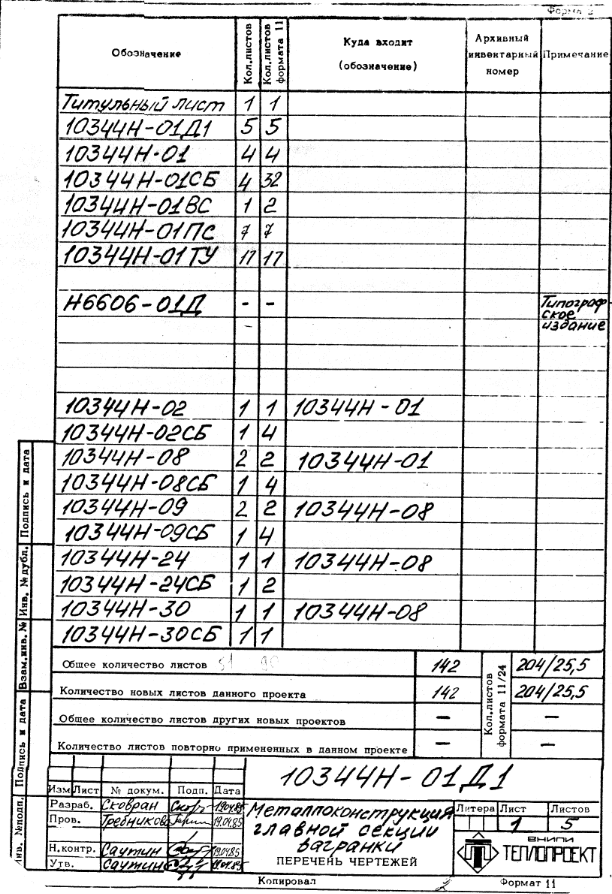 Форма 2
Обозначение Кол.листов Кол.листов формата 11 Куда входит (обозначение) Архивный инвентарный номер Примечание
Титульный лист 1 1
10344Н-01Д1 5 5
10344Н-01 4 4
10344Н-01СБ 4 32
10344Н-01ВС 1 2
10344Н-01ПС 7 7
10344Н-01ТУ 17 17
Н6606-01Д - - Типограф-
ское
издание
10344Н-02 1 1 10344Н-01
10344Н-02СБ 1 4
10344Н-08 2 2 10344Н-01
10344Н-08СБ 1 4
10344Н-09 2 2 10344Н-08
10344Н-09СБ 1 4
10344Н-24 1 1 10344Н-08
10344Н-24СБ 1 2
10344Н-30 1 1 10344Н-08
10344Н-30СБ 1 1
Подпись и дата
Инв. № дубл.
Взам.инв. №
Подпись и дата
Инв. №подп.
Общее количество листов 142 Кол.листов формата 11/24 204/25,5
Количество новых листов данного проекта 142 204/25,5
Общее количество листов других новых проектов — —
Количество листов повторно примененных в данном проекте — —
10344Н-01Д1
Изм Лист № докум. Подп. Дата
Разраб. Сковран 19.04.85
Пров. Гребникова 19.04.85
Н.контр. Саутин 19.04.85
Утв. Саутин
Металлоконструкция
главной секции
вагранки
ПЕРЕЧЕНЬ ЧЕРТЕЖЕЙ
Литера Лист Листов
1 5
ВНИПИ
ТЕПЛОПРОЕКТ
Копировал Формат 11